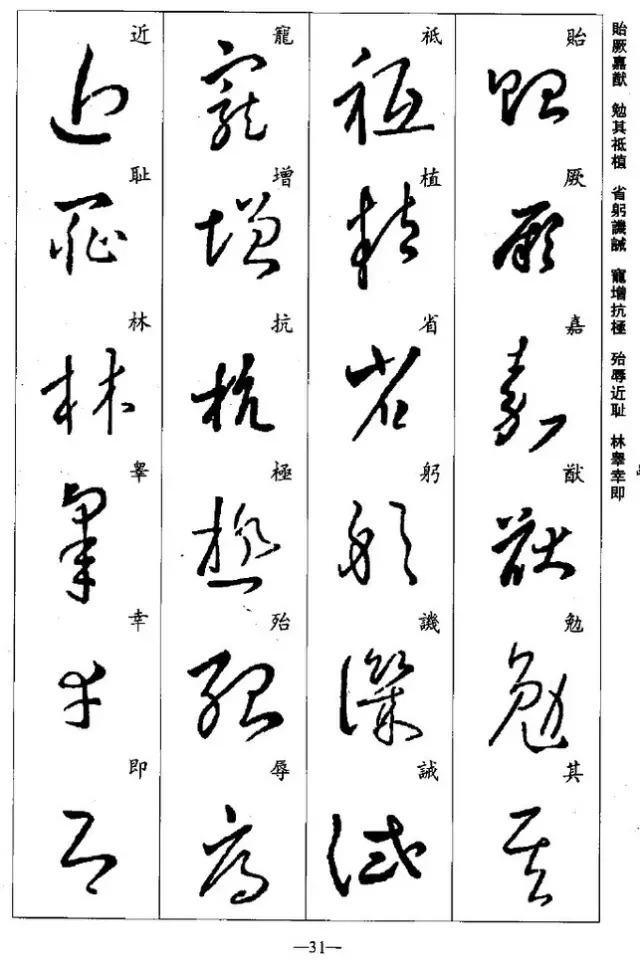 貽厥嘉猷　勉其祗植　省躬譏誡　寵增抗極　殆辱近耻　林睾幸即
貽厥嘉猷勉其
祗植省躬譏誡
寵增抗極殆辱
近耻林睾幸即
—31—